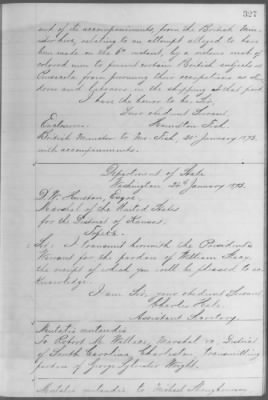 327
and of its accompaniments, from the British Min-
ister here, relating to an attempt alleged to have
been made on the 6th instant, by a riotous mob of
colored men to prevent certain British subjects at
Pensacola from pursuing their occupations as ste-
dores and laborers in the shipping at that port.
I have the honor to be, Sir,
Your obedient Servant
Hamilton Fish.
Enclosure.
British Minister to Mr. Fish, 20" January 1873,
with accompaniments.
Department of State
Washington 24th January 1873.
D. W. Houston, Esqre.
Marshal of the United States
for the District of Kansas.
Topeka.
Sir: I transmit herewith the President's
Warrant for the pardon of William Shay
the receipt of which you will be pleased to ac-
knowledge.
I am Sir, your obedient Servant
Charles Hale,
Assistant Secretary
Mutatis mutandis
To Robert M. Wallace, Marshal &c. District
of South Carolina, Charleston, transmitting
pardon of George Sylvester Wright.
Mutatis mutandis to Michael